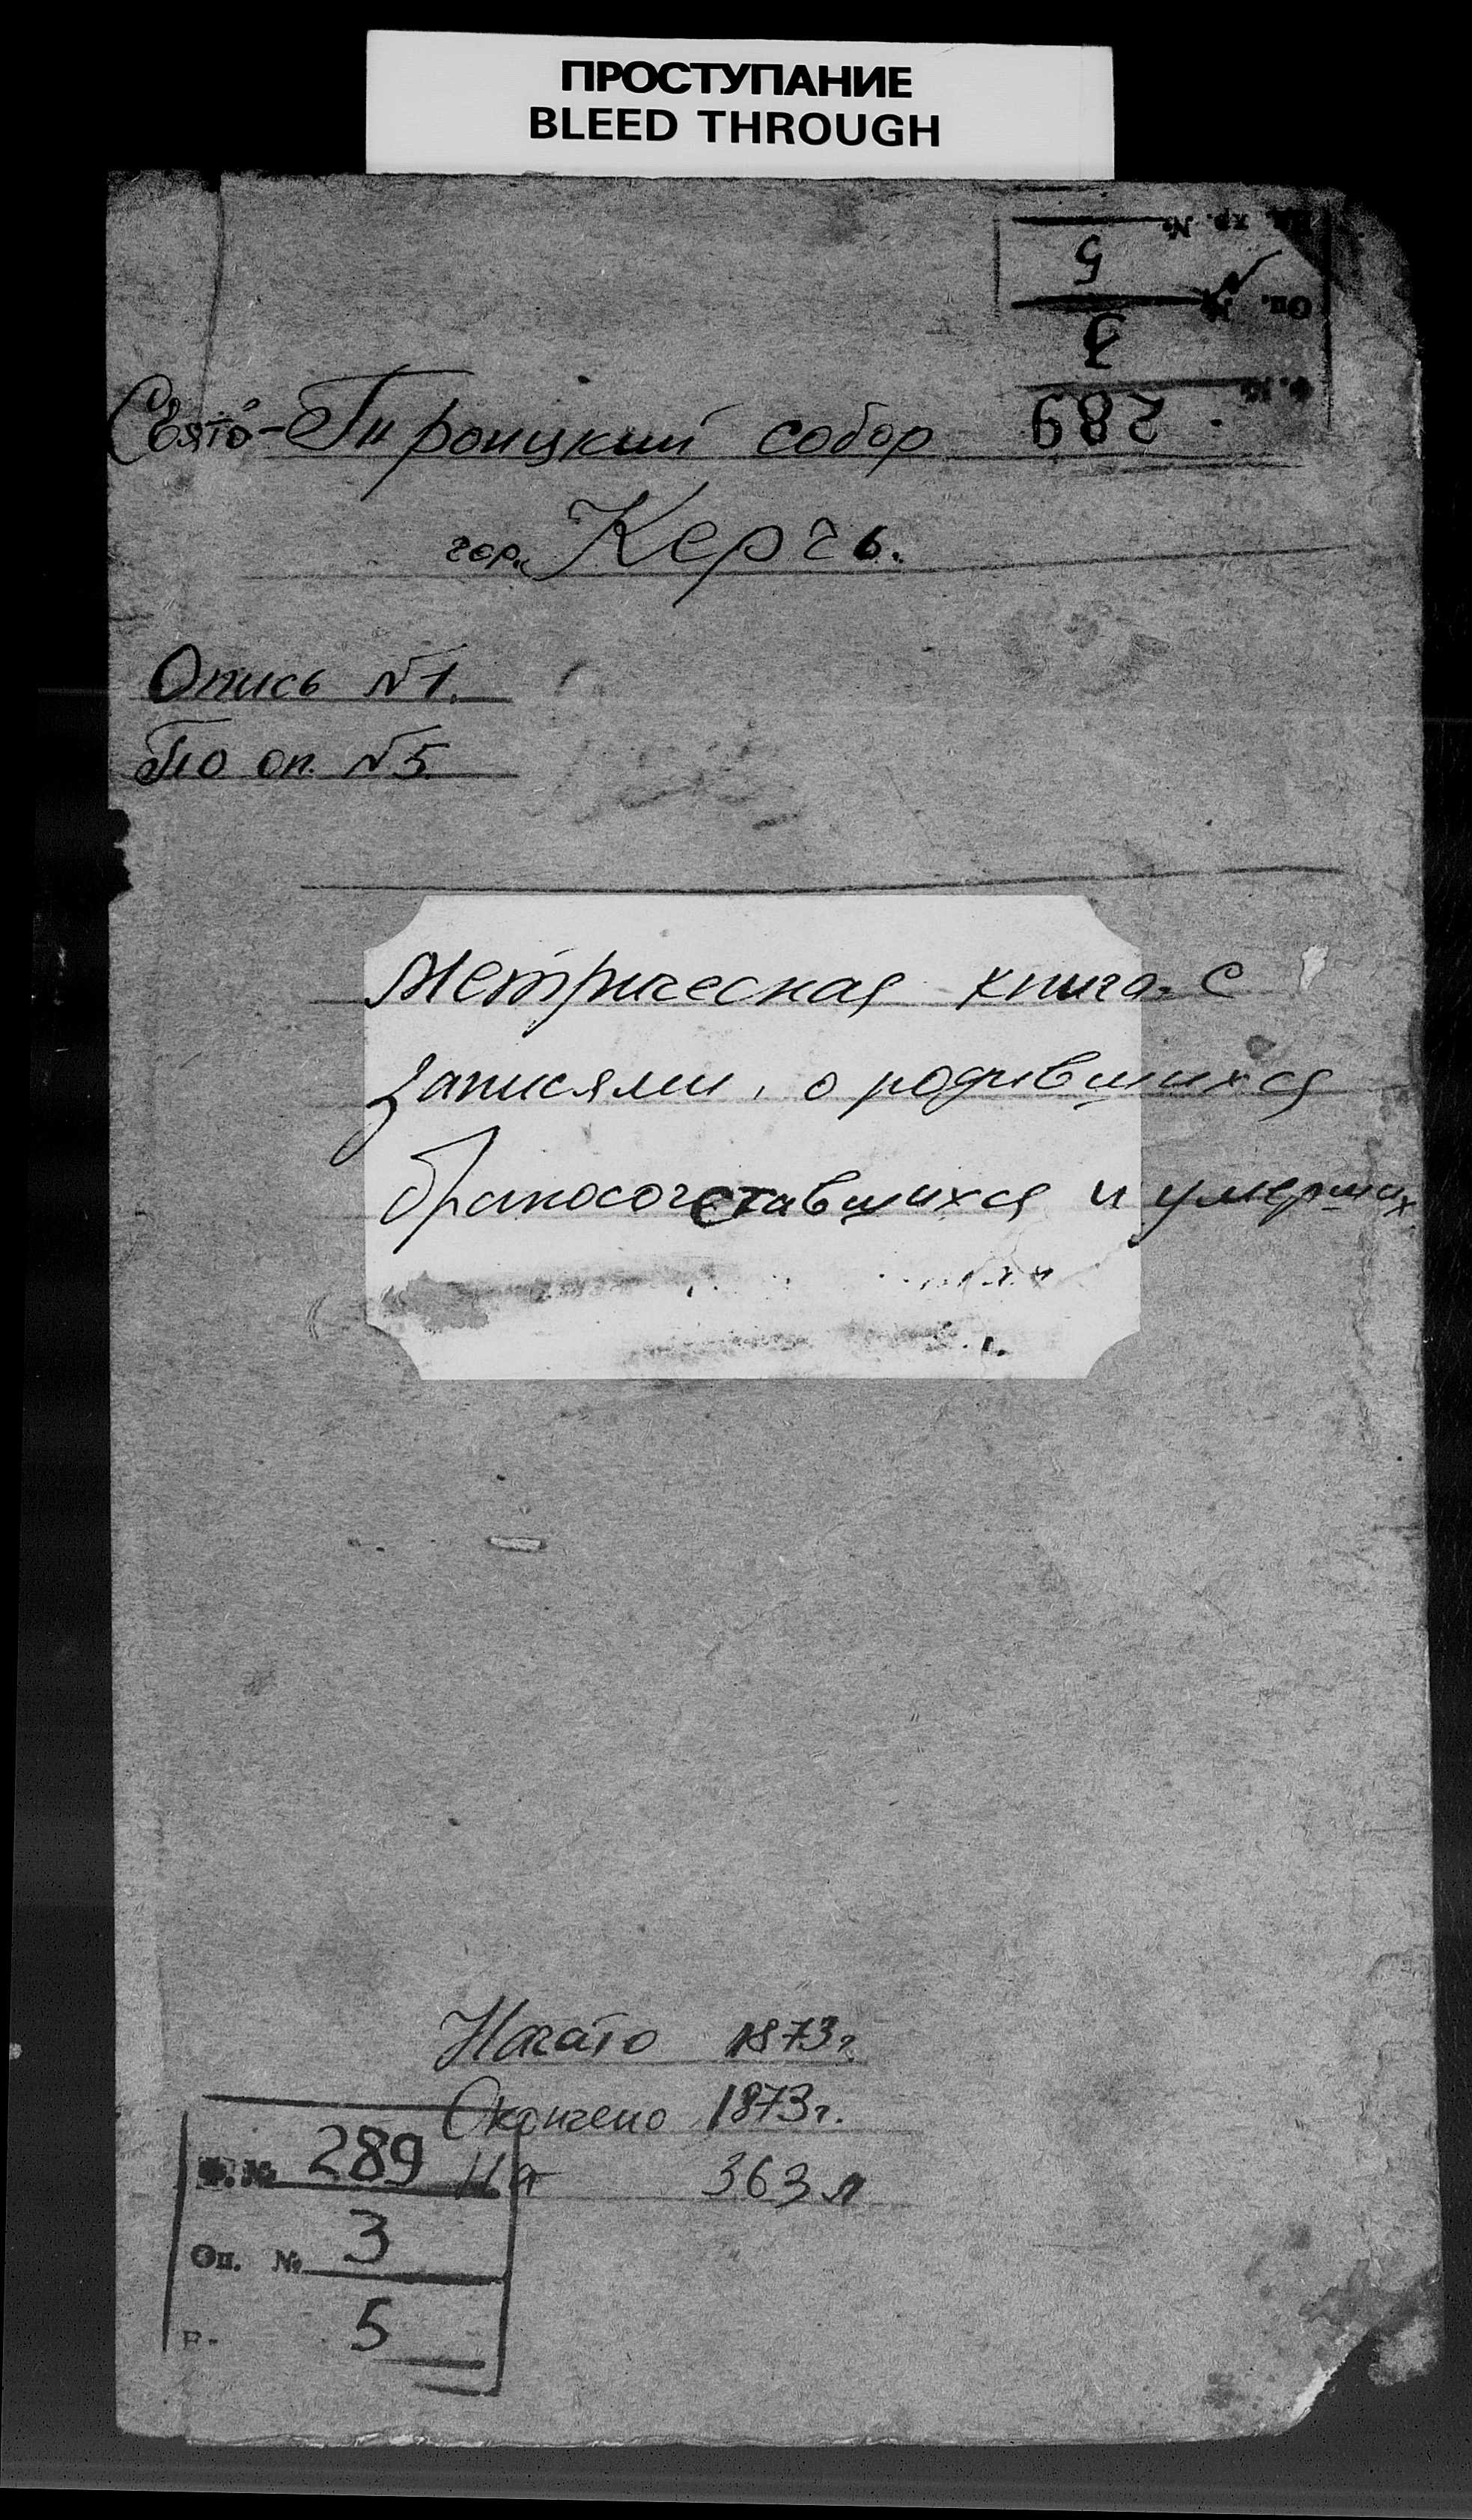 ПРОСТУПАНИЕ
BLEED THROUGH
Ед. хр. №
5
Оп. №
3
Ф. №
289
Свято-Троицкий собор
гор. Керчь.
Опись №1.
По оп. №5
Метрическая книга с
записями о родившихся
бракосочетавшихся и умерших
Начато 1873г.
Окончено 1873г.
На 363 л
Ф. № 289
Оп. № 3
5